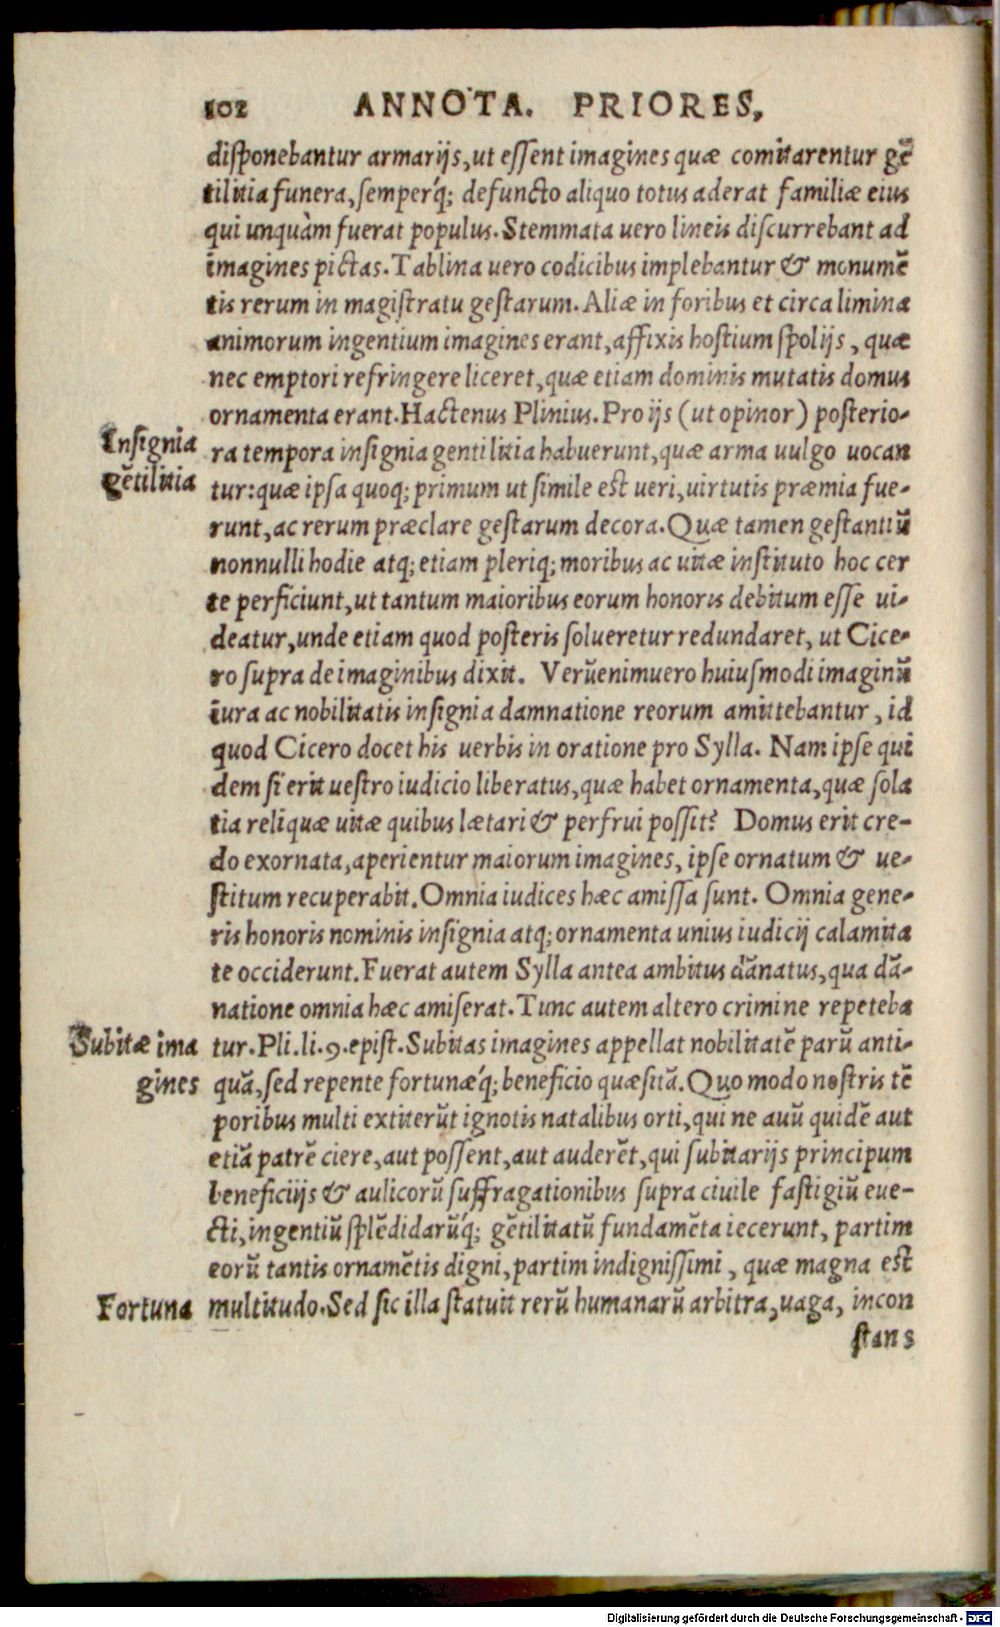 102 ANNOTA. PRIORES,
disponebantur armarijs, ut essent imagines quæ comitarentur gẽ
tilitia funera, semperq́; defuncto aliquo totus aderat familiæ eius
qui unquàm fuerat populus. Stemmata uero lineis discurrebant ad
imagines pictas. Tablina uero codicibus implebantur & monumẽ
tis rerum in magistratu gestarum. Aliæ in foribus et circa limina
animorum ingentium imagines erant, affixis hostium spolijs, quæ
nec emptori refringere liceret, quæ etiam dominis mutatis domus
ornamenta erant. Hactenus Plinius. Pro ijs (ut opinor) posterio-
Insignia
gẽtilitia
ra tempora insignia gentilitia habuerunt, quæ arma uulgo uocan
tur: quæ ipsa quoq; primum ut simile est ueri, uirtutis præmia fue-
runt, ac rerum præclare gestarum decora. Quæ tamen gestantiũ
nonnulli hodie atq; etiam pleriq; moribus ac uitæ instituto hoc cer
te perficiunt, ut tantum maioribus eorum honoris debitum esse ui-
deatur, unde etiam quod posteris solueretur redundaret, ut Cice-
ro supra de imaginibus dixit. Verũenimuero huiusmodi imaginũ
iura ac nobilitatis insignia damnatione reorum amittebantur, id
quod Cicero docet his uerbis in oratione pro Sylla. Nam ipse qui
dem si erit uestro iudicio liberatus, quæ habet ornamenta, quæ sola
tia reliquæ uitæ quibus lætari & perfrui possit? Domus erit cre-
do exornata, aperientur maiorum imagines, ipse ornatum & ue-
stitum recuperabit. Omnia iudices hæc amissa sunt. Omnia gene-
ris honoris nominis insignia atq; ornamenta unius iudicij calamita
te occiderunt. Fuerat autem Sylla antea ambitus dãnatus, qua dã-
natione omnia hæc amiserat. Tunc autem altero crimine repeteba
Subitæ ima
gines
tur. Pli. li. 9. epist. Subitas imagines appellat nobilitatẽ parũ anti-
quã, sed repente fortunæq́; beneficio quæsitã. Quo modo nostris tẽ
poribus multi extiterũt ignotis natalibus orti, qui ne auũ quidẽ aut
etiã patrẽ ciere, aut possent, aut auderẽt, qui subitarijs principum
beneficiijs & aulicorũ suffragationibus supra ciuile fastigiũ eue-
cti, ingentiũ splẽdidarũq́; gẽtilitatũ fundamẽta iecerunt, partim
eorũ tantis ornamẽtis digni, partim indignissimi, quæ magna est
Fortuna
multitudo. Sed sic illa statuit rerũ humanarũ arbitra, uaga, incon
stans
Digitalisierung gefördert durch die Deutsche Forschungsgemeinschaft - DFG